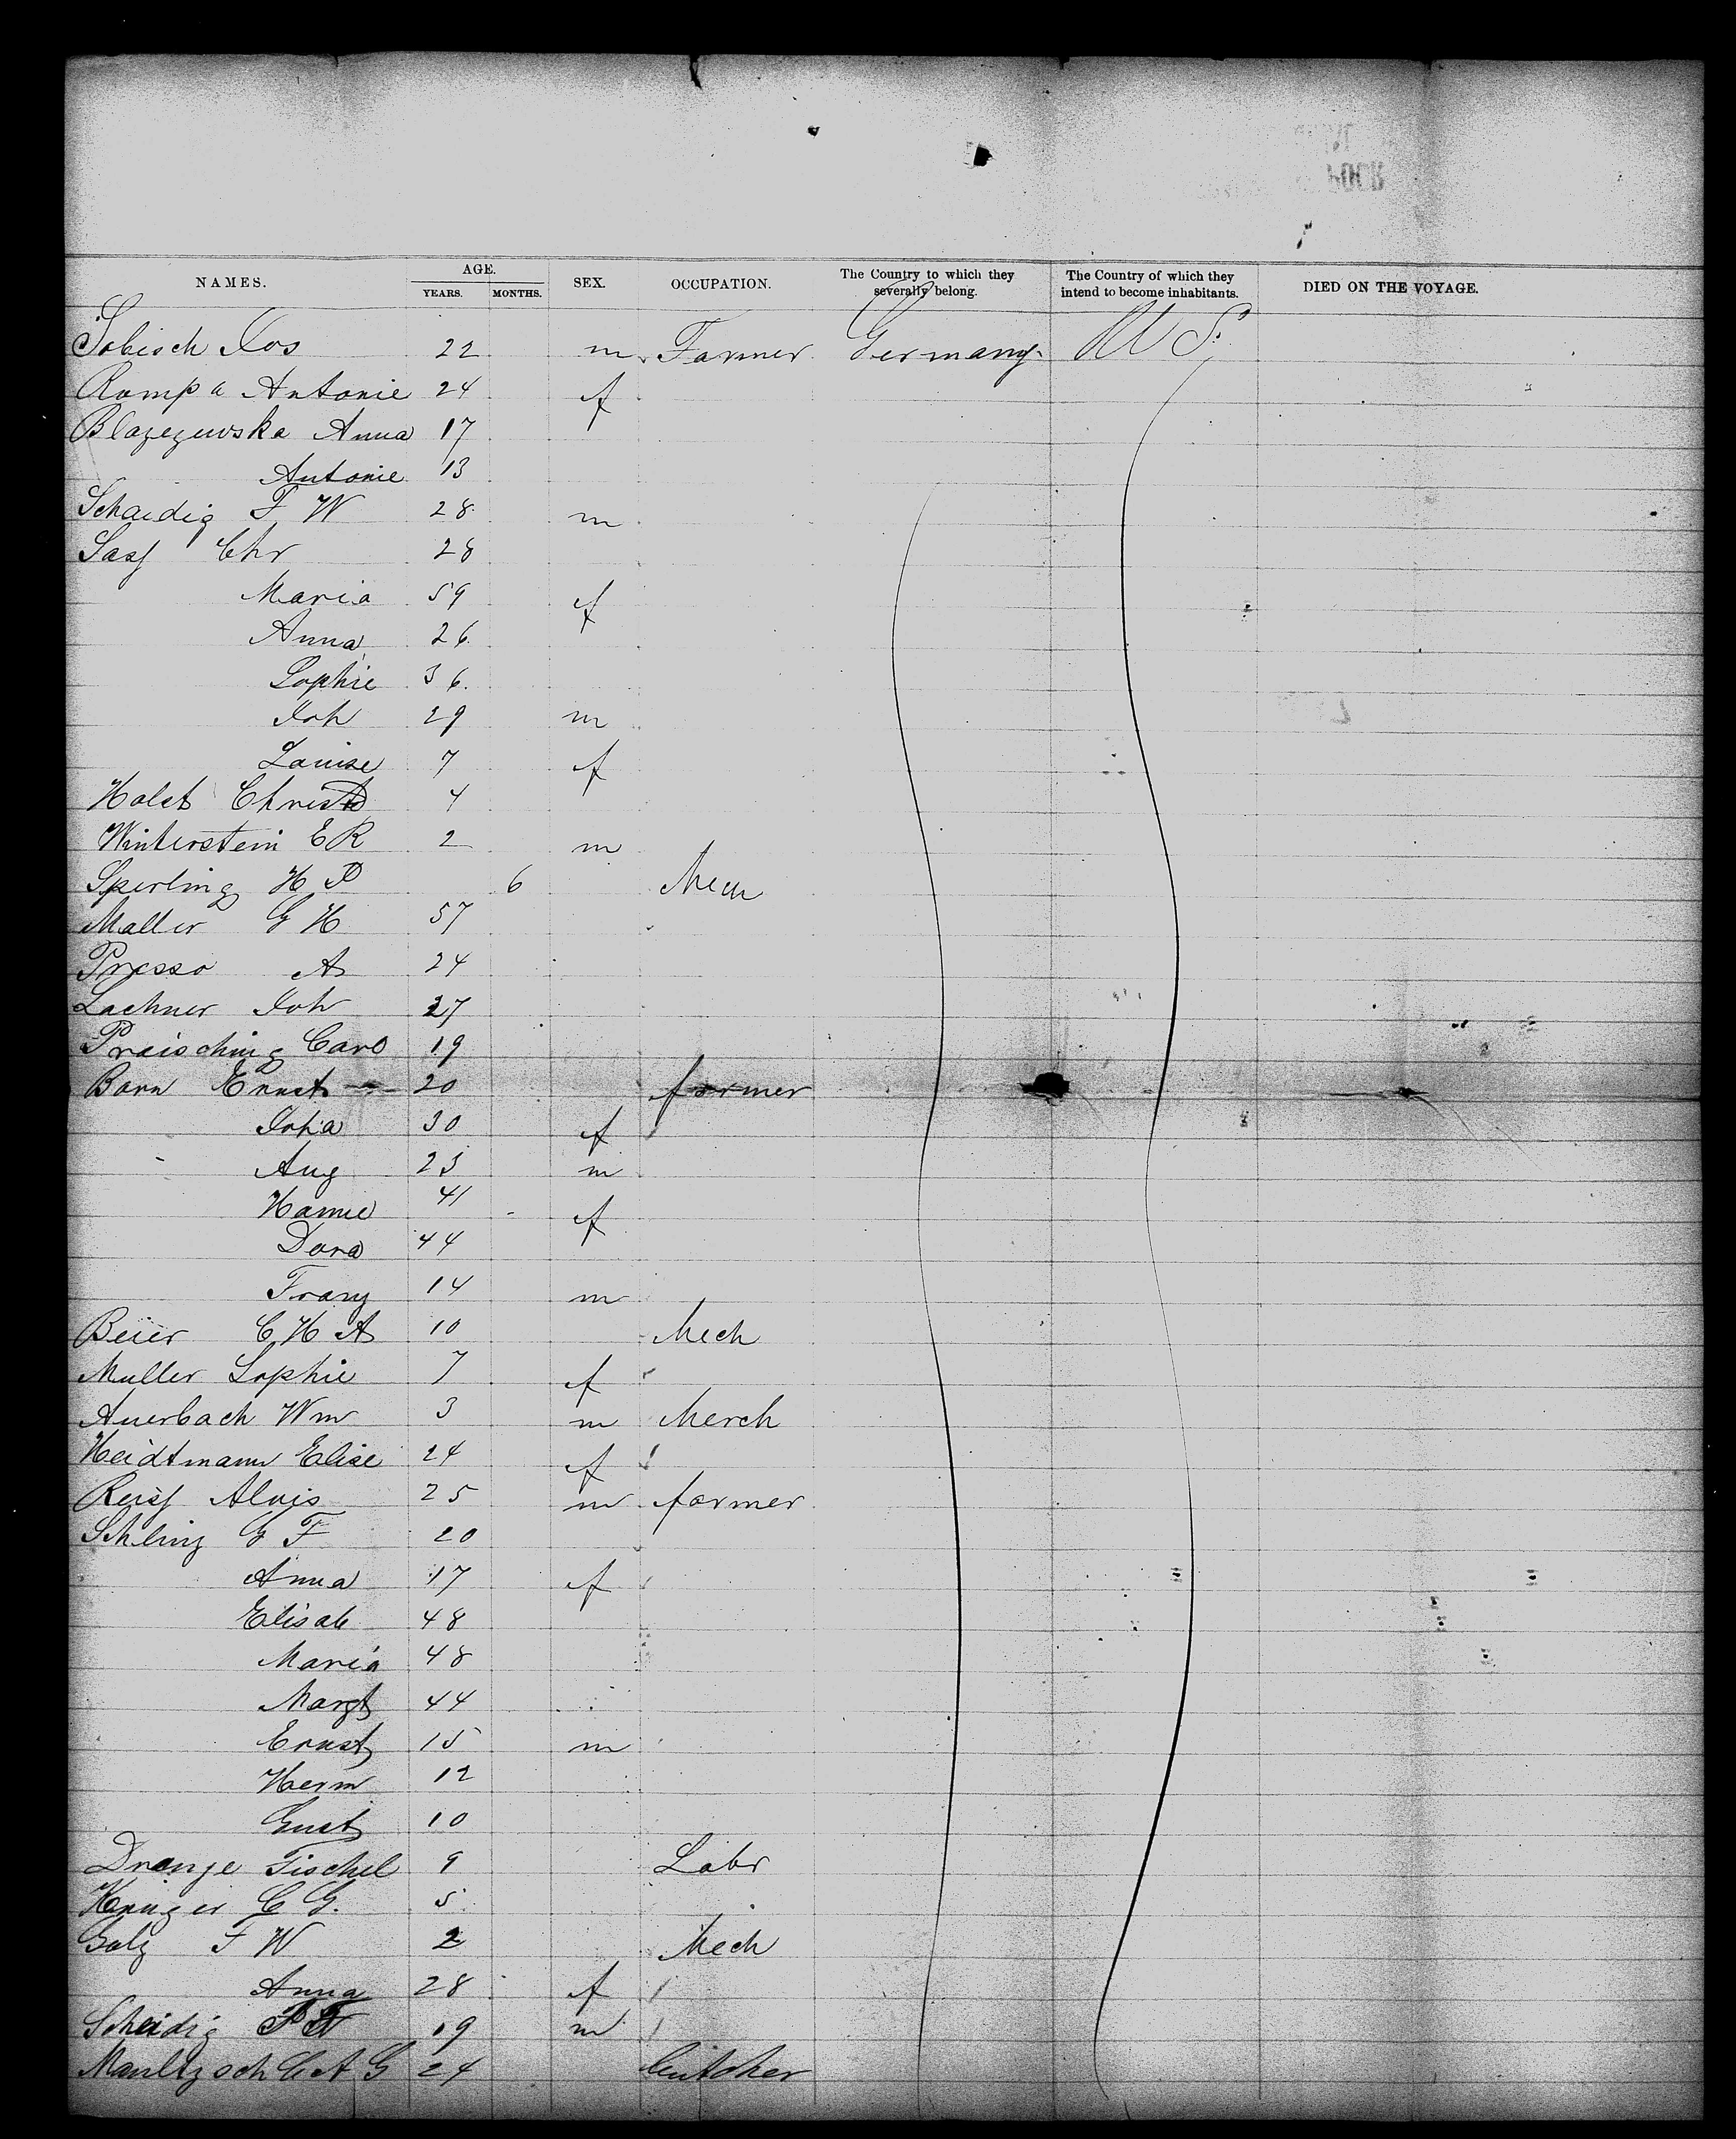 NAMES. AGE. YEARS. MONTHS. SEX. OCCUPATION. The Country to which they severally belong. The Country of which they intend to become inhabitants. DIED ON THE VOYAGE.
Sobisch Jos 22 m Farmer Germany U S
Rompa Antonie 24 f
Blazezewska Anna 17
Antonie 13
Schaidig F W 28 m
Sass Chr 28
Maria 59 f
Anna 26
Sophie 36
Joh 29 m
Louise 7 f
Holst Christ 4
Winterstein E R 2 m
Sperling H P 6 Mech
Maller G H 57
Presso A 24
Lachner Joh 27
Preisching Carl 19
Born Ernst 20 farmer
Joha 30 f
Aug 23 m
Hanne 41 f
Dora 44
Franz 14 m
Beier C H A 10 Mech
Muller Sophie 7 f
Auerbach Wm 3 m Merch
Heidtmann Elise 24 f
Reiss Alois 25 m farmer
Schling G F 20
Anna 17 f
Elisab 48
Maria 48
Margt 44
Ernst 15 m
Herm 12
Gust 10
Dranje Fischel 9 Labr
Kruger C G. 5
Golz F W 2 Mech
Anna 28 f
Scheidig 19 m
Maultzsch C A G 24 butcher